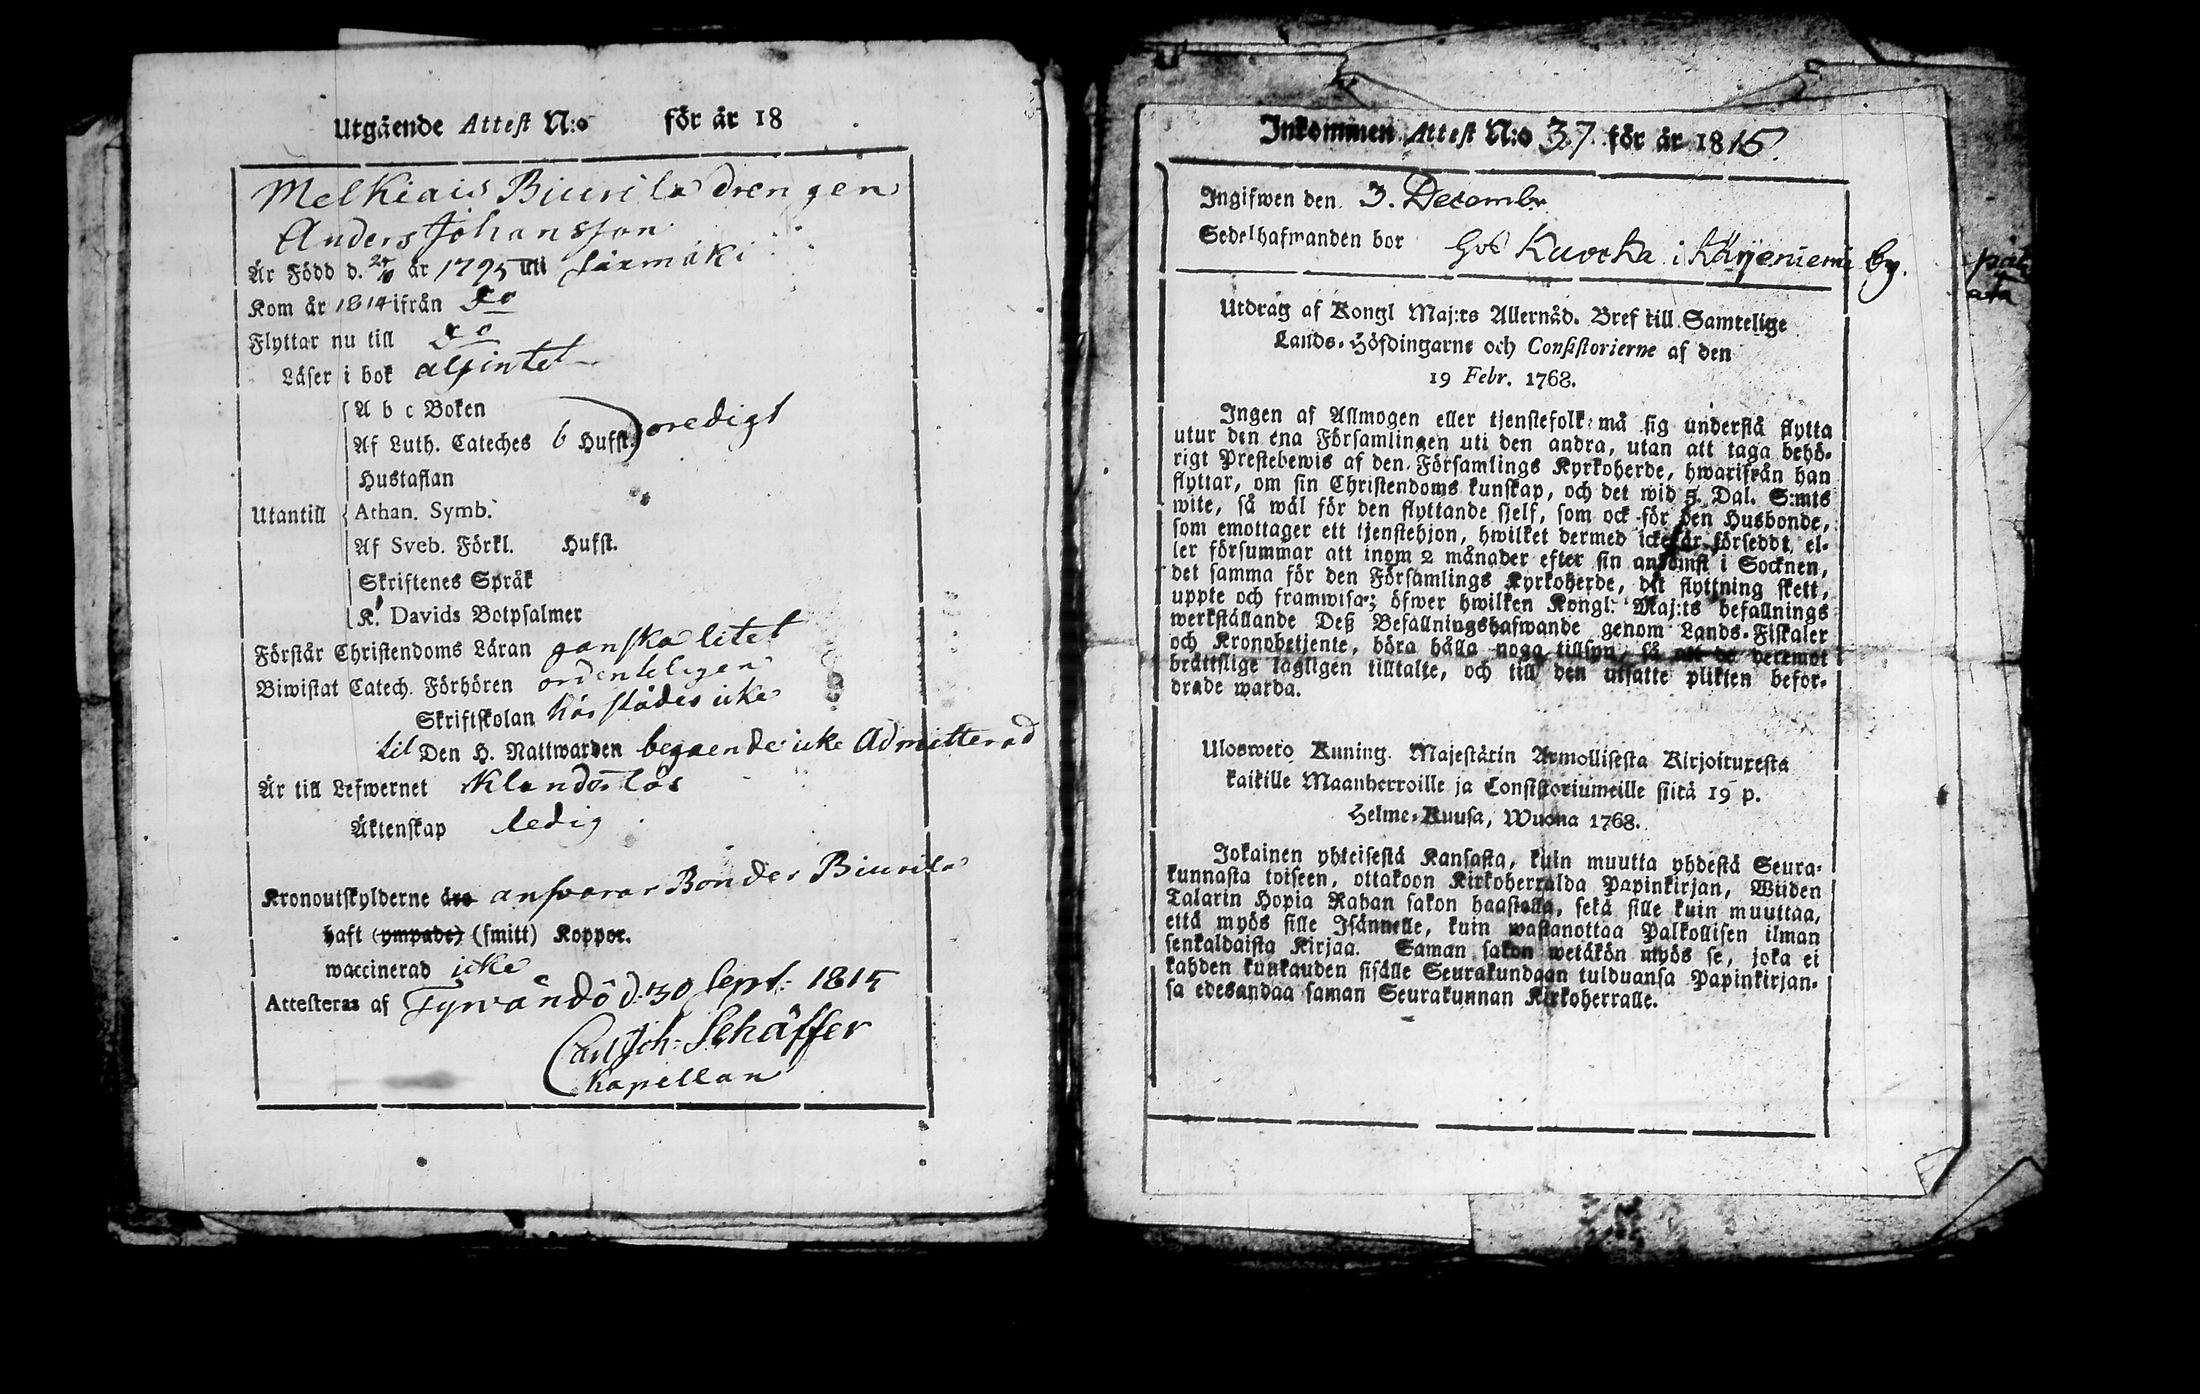 Utgående Attest N:o för år 18
Melkiais Biurila drengen
Anders Johansson
Är Född d. 24/10 år 1795 uti Säxmäki
Kom år 1814 ifrån Do
Flyttar nu till Do
Läser i bok alsintet
A b c Boken
Af Luth. Cateches 6 Hufst. oredigt
Hustaflan
Utantill Athan. Symb.
Af Sveb. Förkl. Hufst.
Skriftenes Språk
K. Davids Botpsalmer
Förstår Christendoms Läran ganska litet
Biwistat Catech. Förhören ordenteligen
Skriftskolan härstädes icke
til Den H. Nattwarden begående icke Admitterad
Är till Lefwernet Klanderlös
Äktenskap ledig
Kronoutskylderne äro answarar Bonden Biurila
haft (ympade) (smitt) Koppor.
waccinerad icke
Attesteras af Tyrvändö d. 30 Sept. 1815
Carl Joh: Schäffer
Kapellan
Inkommen Attest N:o 37 för år 1815.
Ingifwen den 3. Decembr
Sedelhafwanden bor hos Kuocka i Kärjeniemi by.
Utdrag af Kongl Maj:ts Allernåd. Bref till Samtelige
Lands-Höfdingarne och Consistorierne af den
19 Febr. 1768.
Ingen af Allmogen eller tjenstefolk må sig understå flytta
utur den ena Församlingen uti den andra, utan att taga behö-
rigt Prestebewis af den Församlings Kyrkoherde, hwarifrån han
flyttar, om sin Christendoms kunskap, och det wid 5. Dal. S:mts
wite, så wäl för den flyttande sjelf, som ock för den Husbonde,
som emottager ett tjenstehjon, hwilket dermed icke är försedt, el-
ler försummar att inom 2 månader efter sin ankomst i Socknen,
det samma för den Församlings Kyrkoherde, dit flyttning skett,
uppte och framwisa; öfwer hwilken Kongl. Maj:ts befallnings
werkställande Deß Befallningshafwande genom Lands-Fiskaler
och Kronobetjente, böra hålla noga tillsyn, så att de deremot
brättslige lagligen tilltalte, och till den utsatte plikten befor-
drade warda.
Ulosweto Kuning. Majestätin Armollisesta Kirjoituxesta
kaikille Maanherroille ja Consistoriumeille siitä 19 p.
Helme-Kuusa, Wuona 1768.
Jokainen yhteisestä Kansasta, kuin muutta yhdestä Seura-
kunnasta toiseen, ottakoon Kirkoherralda Papinkirjan, Wiiden
Talarin Hopia Rahan sakon haastolla, sekä sille kuin muuttaa,
että myös sille Isännelle, kuin wastanottaa Palkollisen ilman
senkaldaista Kirjaa. Saman sakon wetäkön myös se, joka ei
kahden kuukauden sisälle Seurakundaan tulduansa Papinkirjan-
sa edesandaa saman Seurakunnan Kirkoherralle.